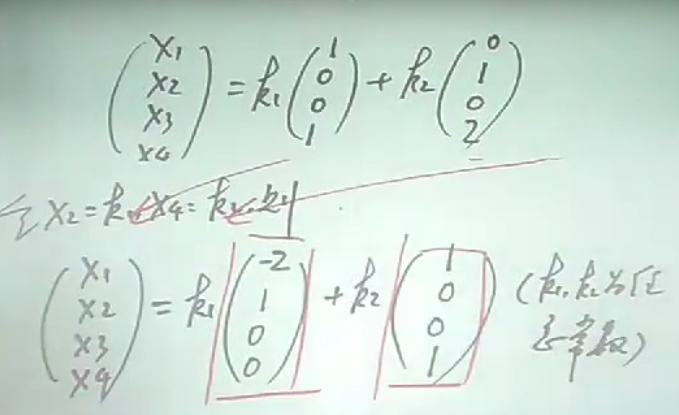 (x1 x2 x3 x4) = k1 (1 0 0 1) + k2 (0 1 0 2)
令 x2 = k1, x4 = k2, 则
(x1 x2 x3 x4) = k1 (-2 1 0 0) + k2 (1 0 0 1) (k1, k2 为任意常数)